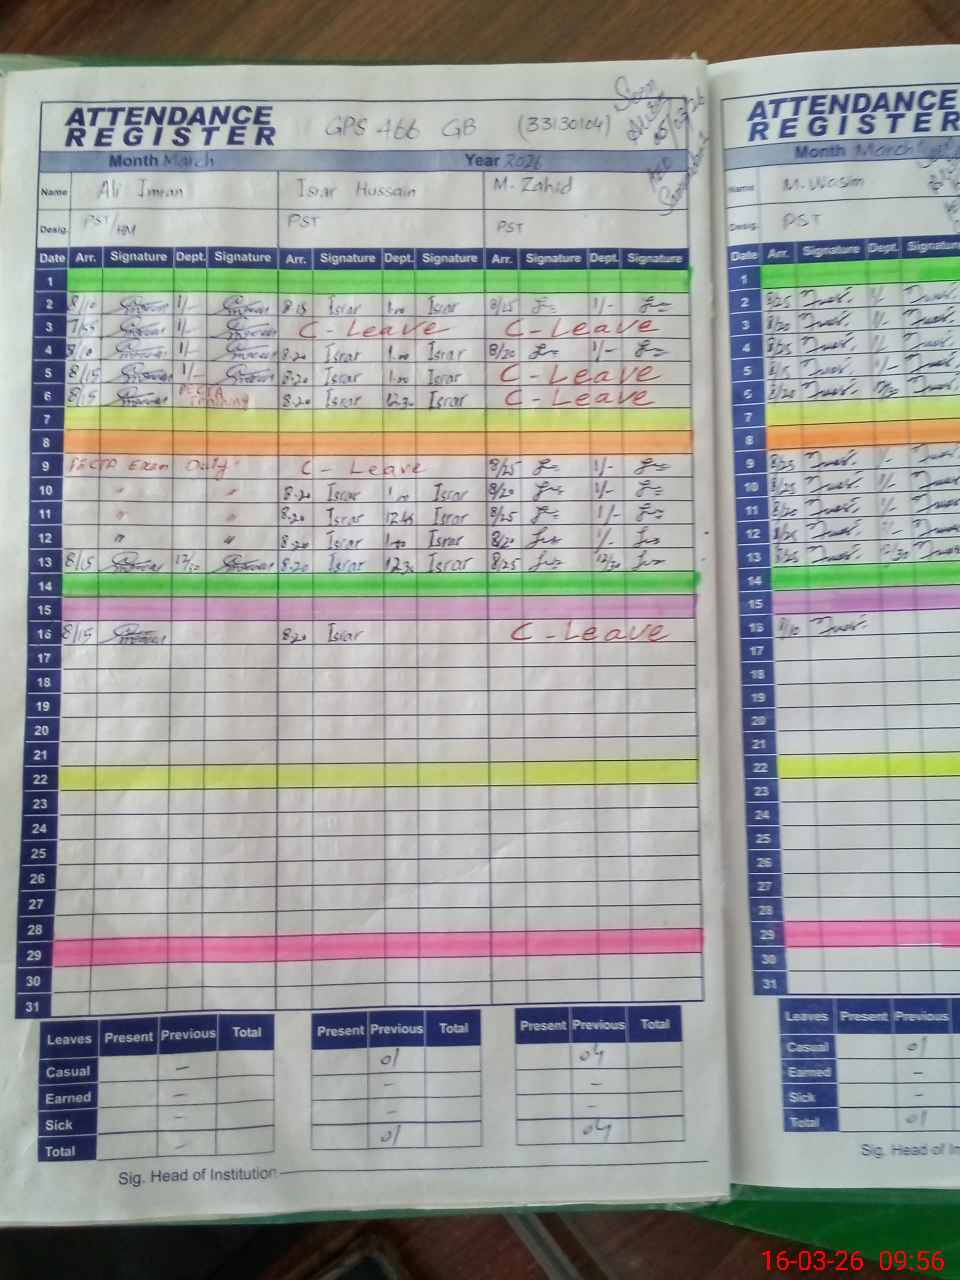 ATTENDANCE REGISTER GPS 466 GB (33130104)
Month March Year 2026
Name Ali Imran Israr Hussain M. Zahid
Desig. PST/HM PST PST
Date Arr. Signature Dept. Signature Arr. Signature Dept. Signature Arr. Signature Dept. Signature
1
2 8/10 1/- 8.15 Israr 1.00 Israr 8/25 1/-
3 7/55 1/- C - Leave C - Leave
4 8/10 1/- 8.20 Israr 1.00 Israr 8/20 1/-
5 8/15 1/- 8.20 Israr 1.00 Israr C - Leave
6 8/15 PECTA Training 8.20 Israr 12.30 Israr C - Leave
7
8
9 PECTA Exam Duty C - Leave 8/25 1/-
10 " " 8.20 Israr 1.00 Israr 8/20 1/-
11 " " 8.20 Israr 12.45 Israr 8/25 1/-
12 " " 8.20 Israr 1.00 Israr 8/20 1/-
13 8/15 12/30 8.20 Israr 12.30 Israr 8/25 12/30
14
15
16 8/15 8.20 Israr C - Leave
17
18
19
20
21
22
23
24
25
26
27
28
29
30
31
Leaves Present Previous Total Present Previous Total Present Previous Total
Casual - 01 04
Earned - - -
Sick - - -
Total - 01 04
Sig. Head of Institution
ATTENDANCE REGISTER
Month March
Name M. Wasim
Desig. PST
Date Arr. Signature Dept. Signature
1
2 8/25 1/-
3 8/20 1/-
4 8/25 1/-
5 8/15 1/-
6 8/20
7
8
9 8/25 1/-
10 8/25 1/-
11 8/20 1/-
12 8/25 1/-
13 8/25 12/30
14
15
16 8/10
17
18
19
20
21
22
23
24
25
26
27
28
29
30
31
Leaves Present Previous
Casual 01
Earned -
Sick -
Total 01
Sig. Head of In
16-03-26 09:56